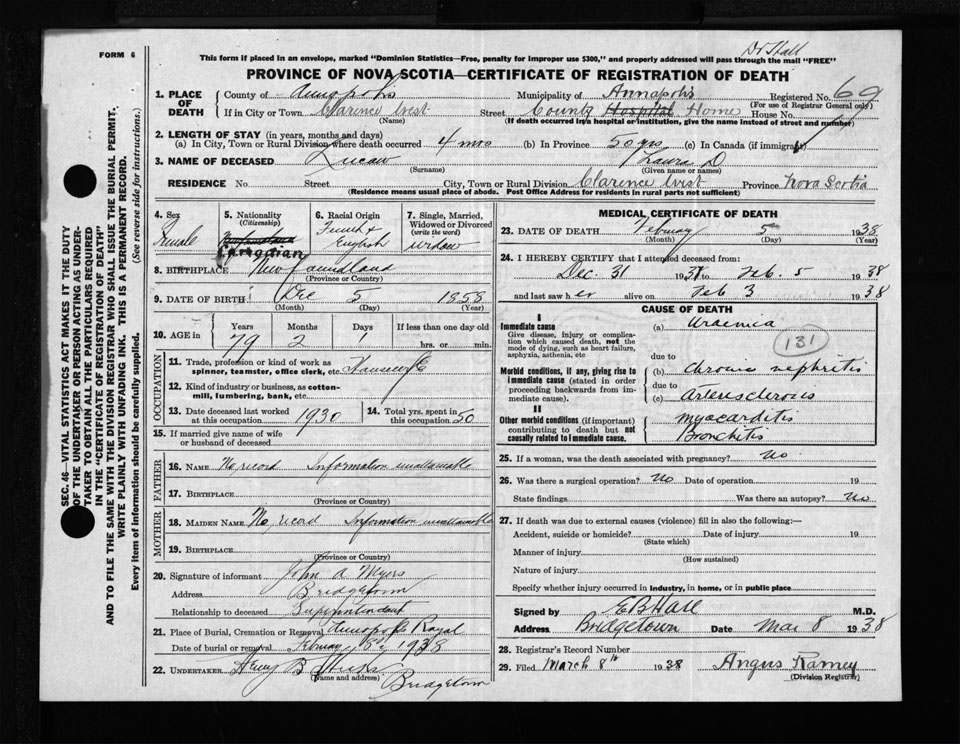 FORM 6
Dr Hall
This form if placed in an envelope, marked "Dominion Statistics—Free, penalty for improper use $300," and properly addressed will pass through the mail "FREE"
PROVINCE OF NOVA SCOTIA—CERTIFICATE OF REGISTRATION OF DEATH
1. PLACE OF DEATH
County of Annapolis Municipality of Annapolis Registered No. 69
(For use of Registrar General only)
If in City or Town Clarence West Street County Hospital Home House No.
(Name) (If death occurred in a hospital or institution, give the name instead of street and number)
2. LENGTH OF STAY (in years, months and days)
(a) In City, Town or Rural Division where death occurred 4 mos (b) In Province 50 yrs (c) In Canada (if immigrant)
3. NAME OF DECEASED Laura D
(Surname) (Given name or names)
RESIDENCE No. Street City, Town or Rural Division Clarence West Province Nova Scotia
(Residence means usual place of abode. Post Office Address for residents in rural parts not sufficient)
4. Sex
Female
5. Nationality
(Citizenship)
Newfoundland
Canadian
6. Racial Origin
French &
English
7. Single, Married, Widowed or Divorced
(write the word)
widow
8. BIRTHPLACE Newfoundland
(Province or Country)
9. DATE OF BIRTH Dec 5 1858
(Month) (Day) (Year)
10. AGE in
Years Months Days If less than one day old
79 2 1 hrs. or min.
OCCUPATION
11. Trade, profession or kind of work as
spinner, teamster, office clerk, etc. Housewife
12. Kind of industry or business, as cotton-
mill, lumbering, bank, etc.
13. Date deceased last worked
at this occupation 1930
14. Total yrs. spent in
this occupation 50
15. If married give name of wife
or husband of deceased
FATHER
16. NAME No record Information unattainable
17. BIRTHPLACE
(Province or Country)
MOTHER
18. MAIDEN NAME No record Information unattainable
19. BIRTHPLACE
(Province or Country)
20. Signature of informant John A Meyers
Address Bridgetown
Relationship to deceased Superintendent
21. Place of Burial, Cremation or Removal Annapolis Royal
Date of burial or removal February 1938
22. UNDERTAKER B Hicks
(Name and address)
Bridgetown
MEDICAL CERTIFICATE OF DEATH
23. DATE OF DEATH February 5 1938
(Month) (Day) (Year)
24. I HEREBY CERTIFY that I attended deceased from:
Dec. 31 1937 to Feb. 5 1938
and last saw her alive on Feb 3 1938
CAUSE OF DEATH
I
Immediate cause
Give disease, injury or complica-
tion which caused death, not the
mode of dying, such as heart failure,
asphyxia, asthenia, etc
(a) Uraemia
131
due to
Morbid conditions, if any, giving rise to
immediate cause (stated in order
proceeding backwards from im-
mediate cause).
(b) chronic nephritis
due to
(c) arteriosclerosis
II
Other morbid conditions (if important)
contributing to death but not
causally related to Immediate cause.
myocarditis
Bronchitis
25. If a woman, was the death associated with pregnancy? No
26. Was there a surgical operation? No Date of operation 19
State findings Was there an autopsy? No
27. If death was due to external causes (violence) fill in also the following:—
Accident, suicide or homicide? Date of injury 19
(State which)
Manner of injury
(How sustained)
Nature of injury
Specify whether injury occurred in industry, in home, or in public place
Signed by E B Hall M.D.
Address Bridgetown Date Mar 8 1938
28. Registrar's Record Number
29. Filed March 8th 1938 Angus Ramey
(Division Registrar)
SEC. 46—VITAL STATISTICS ACT MAKES IT THE DUTY
OF THE UNDERTAKER OR PERSON ACTING AS UNDER-
TAKER TO OBTAIN ALL THE PARTICULARS REQUIRED
IN THE "CERTIFICATE OF REGISTRATION OF DEATH"
AND TO FILE THE SAME WITH THE DIVISION REGISTRAR WHO SHALL ISSUE THE BURIAL PERMIT.
WRITE PLAINLY WITH UNFADING INK. THIS IS A PERMANENT RECORD.
Every item of information should be carefully supplied. (See reverse side for instructions.)